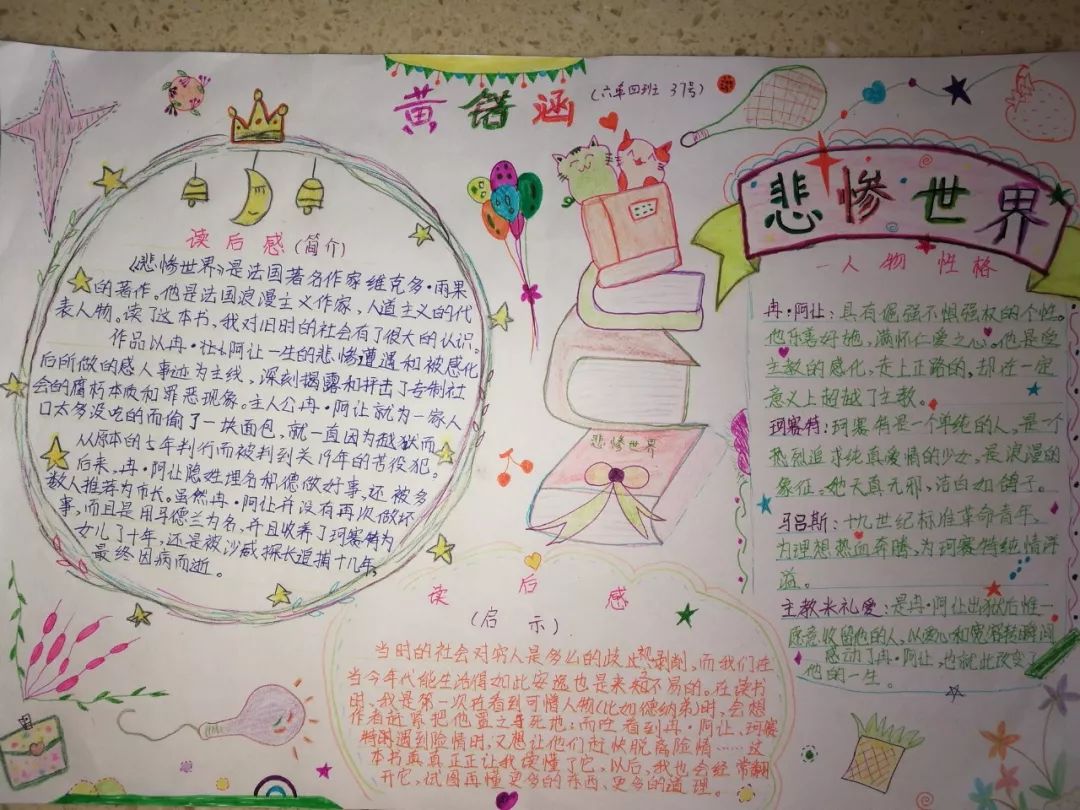 黄锴涵
(六年四班 37号)
读后感(简介)
《悲惨世界》是法国著名作家维克多·雨果
的著作。他是法国浪漫主义作家,人道主义的代
表人物。读了这本书,我对旧时的社会有了很大的认识。
作品以冉·阿让一生的悲惨遭遇和被感化
后所做的感人事迹为主线,深刻揭露和抨击了专制社
会的腐朽本质和罪恶现象。主人公冉·阿让就为一家人
口太多没吃的而偷了一块面包,就一直因为越狱而
从原本的5年判行而被判到关19年的苦役犯。
后来,冉·阿让隐姓埋名积德做好事,还被多
数人推荐为市长。虽然冉·阿让并没有再次做坏
事,而且是用马德兰为名,并且收养了珂赛特为
女儿了十年,还是被沙威探长追捕十几年,
最终因病而逝。
悲惨世界
读后感
(启示)
当时的社会对穷人是多么的歧视剥削,而我们在
当今年代能生活得如此安逸也是来知不易的。在读书
时,我是第一次在看到可憎人物(比如德纳第)时,会想
作者赶紧把他置之于死地;而在看到冉·阿让、珂赛
特的遇到险情时,又想让他们赶快脱离险情……这
本书真真正正让我读懂了它,以后,我也会经常翻
开它,试图再懂更多的东西、更多的道理。
悲惨世界
一人物性格
冉·阿让:具有倔强不惧强权的个性。
他乐善好施,满怀仁爱之心。他是受
主教的感化,走上正路的,却在一定
意义上超越了主教。
珂赛特:珂赛特是一个单纯的人,是一个
热烈追求纯真爱情的少女,是浪漫的
象征。她天真无邪,洁白如鸽子。
马吕斯:十九世纪标准革命青年,
为理想热血奔腾,为珂赛特纯情洋
溢。
主教米礼爱:是冉·阿让出狱后惟一
愿意收留他的人,以爱心和宽容转瞬间
感动了冉·阿让,也就此改变了
他的一生。